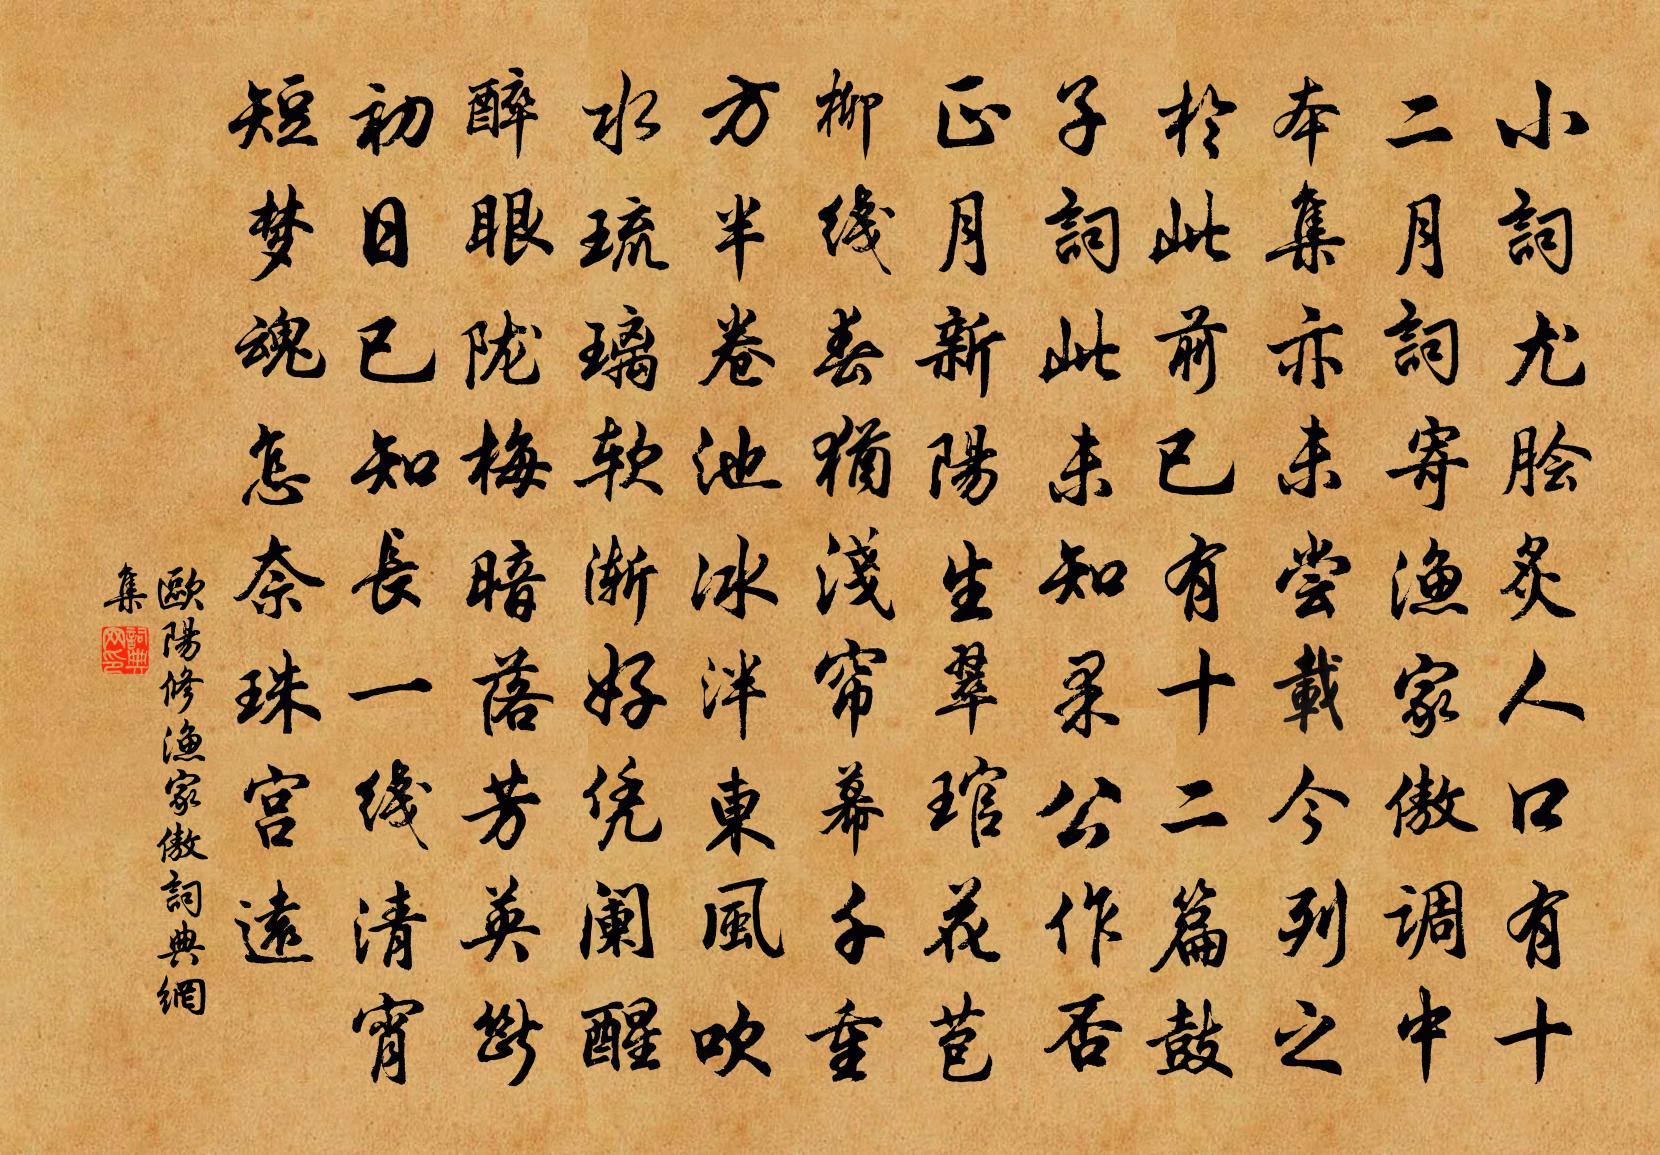 小詞尤脍炙人口有十
二月詞寄渔家傲调中
本集亦未尝載今列之
於此前已有十二篇鼓
子詞此未知果公作否
正月新陽生翠琯花苞
柳线春猶淺帘幕千重
方半卷池冰泮東風吹
水琉璃软渐好凭阑醒
醉眼陇梅暗落芳英斷
初日已知長一线清宵
短梦魂怎奈珠宫遠
歐陽修渔家傲詞典網
集
詞典网印